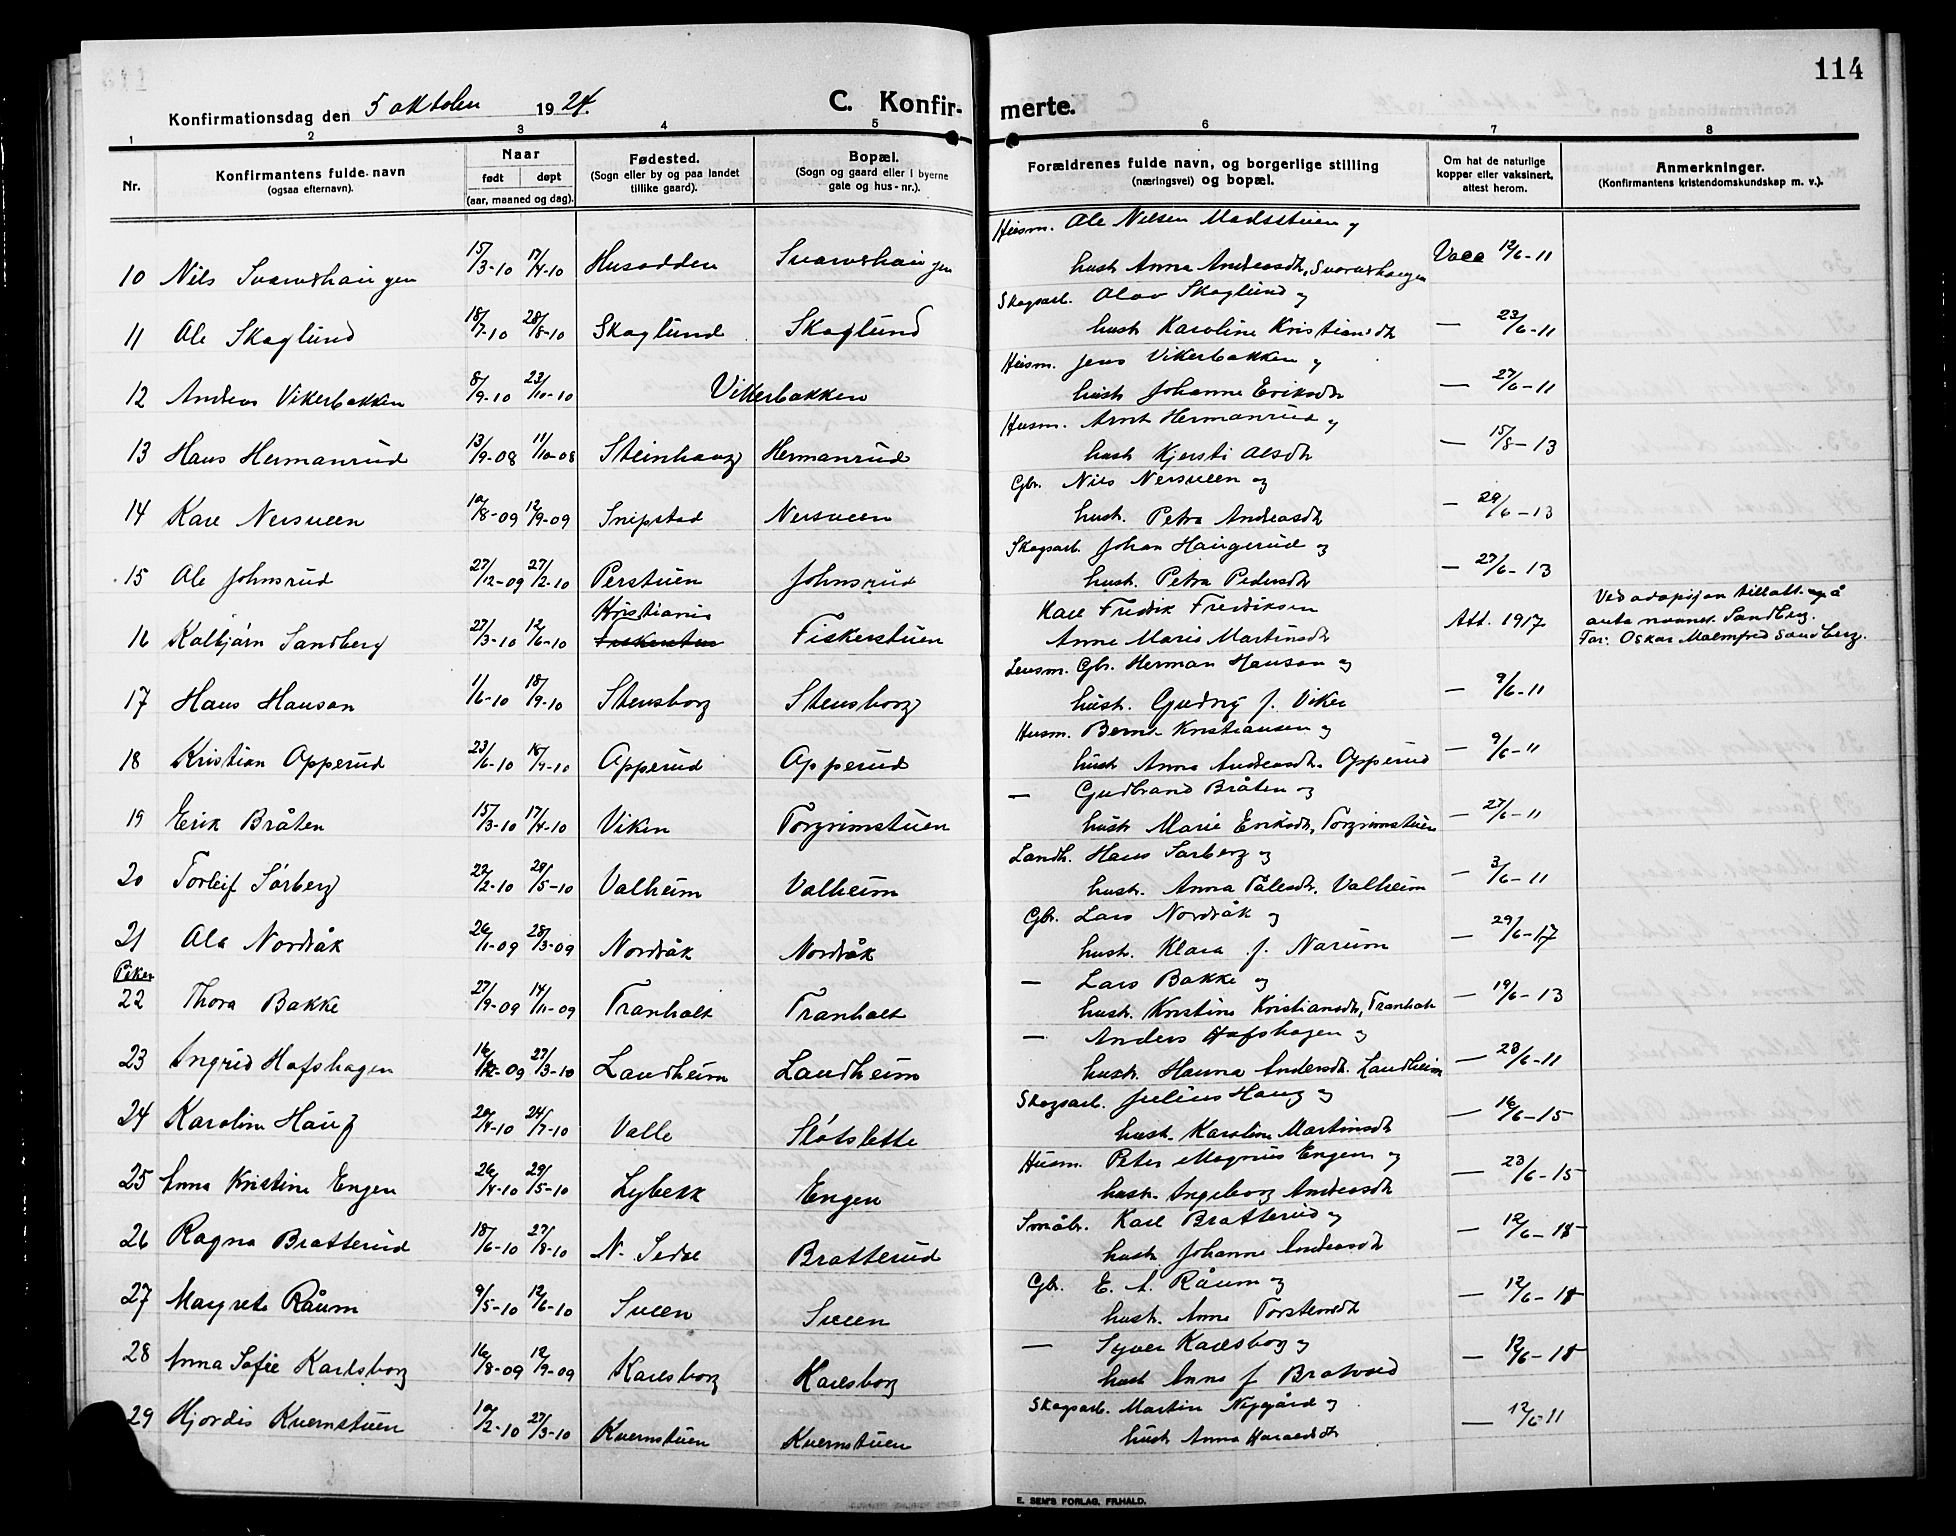 114
Konfirmationsdag den 5 oktober 1924.
C. Konfir-merte.
1 2 3 4 5 6 7 8
Nr.
Konfirmantens fulde navn
(ogsaa efternavn).
Naar
født døpt
(aar, maaned og dag).
Fødested.
(Sogn eller by og paa landet
tillike gaard).
Bopæl.
(Sogn og gaard eller i byerne
gate og hus-nr.).
Forældrenes fulde navn, og borgerlige stilling
(næringsvei) og bopæl.
Om hat de naturlige
kopper eller vaksinert,
attest herom.
Anmerkninger.
(Konfirmantens kristendomskundskap m. v.).
Husm. Ole Nilsen Madsstuen og
10 Nils Svarvshaugen 15/3-10 17/4-10 Husodden Svarvshaugen hust. Anna Andersdt., Svarvshaugen Vacc 12/6-11
Skogsarb. Olav Skoglund og
11 Ole Skoglund 18/7-10 28/8-10 Skoglund Skoglund hust. Karoline Kristiansdt — 23/6-11
Husm. Jens Vikerbakken og
12 Anders Vikerbakken 8/9-10 23/10-10 Vikerbakken hust. Johanne Eriksdt — 27/6-11
Husm. Arnt Hermanrud og
13 Hans Hermanrud 13/9-08 11/10-08 Steinhaug Hermanrud hust. Kjersti Olsdt — 15/8-13
Gbr. Nils Nersveen og
14 Kare Nersveen 10/8-09 12/9-09 Snipstad Nersveen hust. Petra Andersdt — 29/6-13
Skogsarb. Johan Haugerud og
15 Ole Johnsrud 27/12-09 27/2-10 Perstuen Johnsrud hust. Petra Pedersdt — 27/6-13
Kristiania Karl Fredrik Fredriksen Ved adopsjon tillatt også
16 Kolbjørn Sandberg 27/3-10 12/6-10 Fiskerstuen Anne Marie Martinsdt Att. 1917 anta navnet Sandberg.
Far: Oskar Malmfred Sandberg.
Lensm. Gbr. Herman Hanson og
17 Hans Hanson 1/6-10 18/9-10 Stensborg Stensborg hust. Gudny f. Viker — 9/6-11
Husm. Bernt Kristiansen og
18 Kristian Opperud 23/6-10 18/9-10 Opperud Opperud hust. Anna Andersdt. Opperud — 9/6-11
— Gudbrand Bråten og
19 Erik Bråten 15/3-10 17/4-10 Viken Torgrimstuen hust. Marie Eriksdt, Torgrimstuen — 27/6-11
Landh. Hans Sørberg og
20 Torleif Sørberg 22/2-10 28/5-10 Valheim Valheim hust. Anna Pålsdt. Valheim — 3/6-11
Gbr. Lars Nordråk og
21 Ola Nordråk 26/1-09 28/3-09 Nordråk Nordråk hust. Klara f. Narum — 29/6-17
Piker — Lars Bakke og
22 Thora Bakke 27/9-09 14/11-09 Tranholt Tranholt hust. Kristine Kristiansdt, Tranholt — 19/6-13
— Anders Hofshagen og
23 Ingrid Hofshagen 16/12-09 27/3-10 Landheim Landheim hust. Hanna Andersdt. Landheim — 23/6-11
Skogsarb. Julius Haug og
24 Karoline Haug 20/4-10 24/7-10 Valle Slåtslette hust. Karoline Martinsdt — 16/6-15
Husm. Peter Magnus Engen og
25 Anna Kristine Engen 26/4-10 29/5-10 Lybekk Engen hust. Ingeborg Andersdt — 23/6-15
Småbr. Karl Bratterud og
26 Ragna Bratterud 18/6-10 27/8-10 N. Bratterud hust. Johanne Andersdt — 12/6-18
Gbr. E. A. Råum og
27 Margrete Råum 9/5-10 12/6-10 Sveen Sveen hust. Anne Torstensdt — 12/6-18
— Syver Karlsborg og
28 Anna Sofie Karlsborg 16/8-09 12/9-09 Karlsborg Karlsborg hust. Anne f. Bratvold — 12/6-18
Skogsarb. Martin Nygård og
29 Hjordis Kvernstuen 10/2-10 27/3-10 Kvernstuen Kvernstuen hust. Anna Haraldsdt — 12/6-11
E. SEM'S FORLAG, FR.HALD.